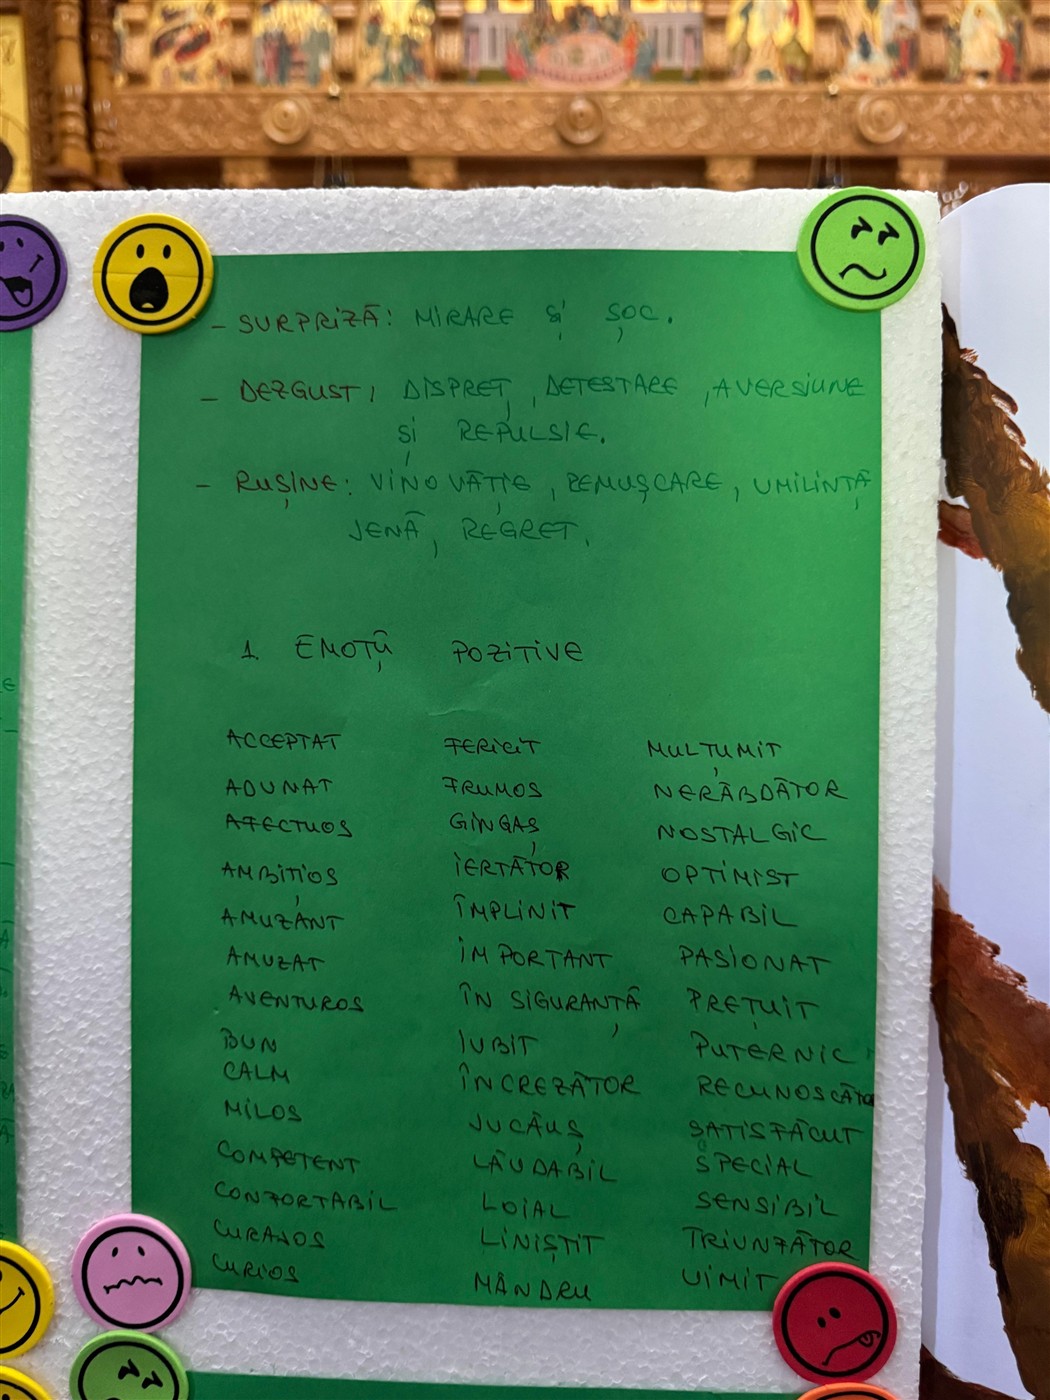 - SURPRIZĂ: MIRARE ȘI ȘOC.
- DEZGUST: DISPREȚ, DETESTARE, AVERSIUNE
ȘI REPULSIE.
- RUȘINE: VINOVĂȚIE, REMUȘCARE, UMILINȚĂ
JENĂ, REGRET.
1. EMOȚII POZITIVE
ACCEPTAT FERICIT MULȚUMIT
ADUNAT FRUMOS NERĂBDĂTOR
AFECTUOS GINGAȘ NOSTALGIC
AMBIȚIOS IERTĂTOR OPTIMIST
AMUZANT ÎMPLINIT CAPABIL
AMUZAT IMPORTANT PASIONAT
AVENTUROS ÎN SIGURANȚĂ PREȚUIT
BUN IUBIT PUTERNIC
CALM ÎNCREZĂTOR RECUNOSCĂTOR
MILOS JUCĂUȘ SATISFĂCUT
COMPETENT LĂUDABIL SPECIAL
CONFORTABIL LOIAL SENSIBIL
CURAJOS LINIȘTIT TRIUNFĂTOR
CURIOS MÂNDRU UIMIT